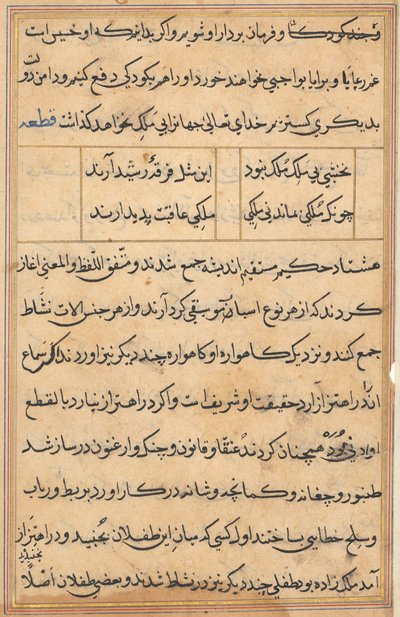 و چند کودک و فرمان بردار او شویم و اکر بدانیم که او خسیس است
غم رعایا و برایا بواجبی نخواهد خورد او را هم بکودکی دفع کنیم و دامن دولت
بدیکری کستریم خدای تعالی جهان را بی ملک نخواهد کذاشت قطعه
نخشبی بی ملک ملک نبود این مثل فرقهٔ رشید آرند
چونکه ملکی بماند بی ملکی ملکی عاقبت پدید آرند
هشتاد حکیم مستقیم اندیشه جمع شدند و متفق اللفظ والمعنی اغاز
کردند که از هر نوع اسباب موسیقی کرد آرند و از هر جنس الات نشاط
جمع کنند و نزدیک کاهواره او کاهواره چند دیکر نیز اوردند اکر سماع
او را در اهتزاز آرد حقیقت او شریف است و اکر در اهتزاز نیارد بالقطع
او دنی بود همچنان کردند عنقا و قانون و چنک و ارغنون در ساز شد
طنبور و چغانه و کمانچه و شانه در کار اورد بربط و رباب
و خطایی بساختند اول کسی که میان این طفلان بجنبید و در اهتزاز
آمد ملک زاده بود طفلی چند دیکر نیز در نشاط شدند و بعضی طفلان اصلا نجنبیدند